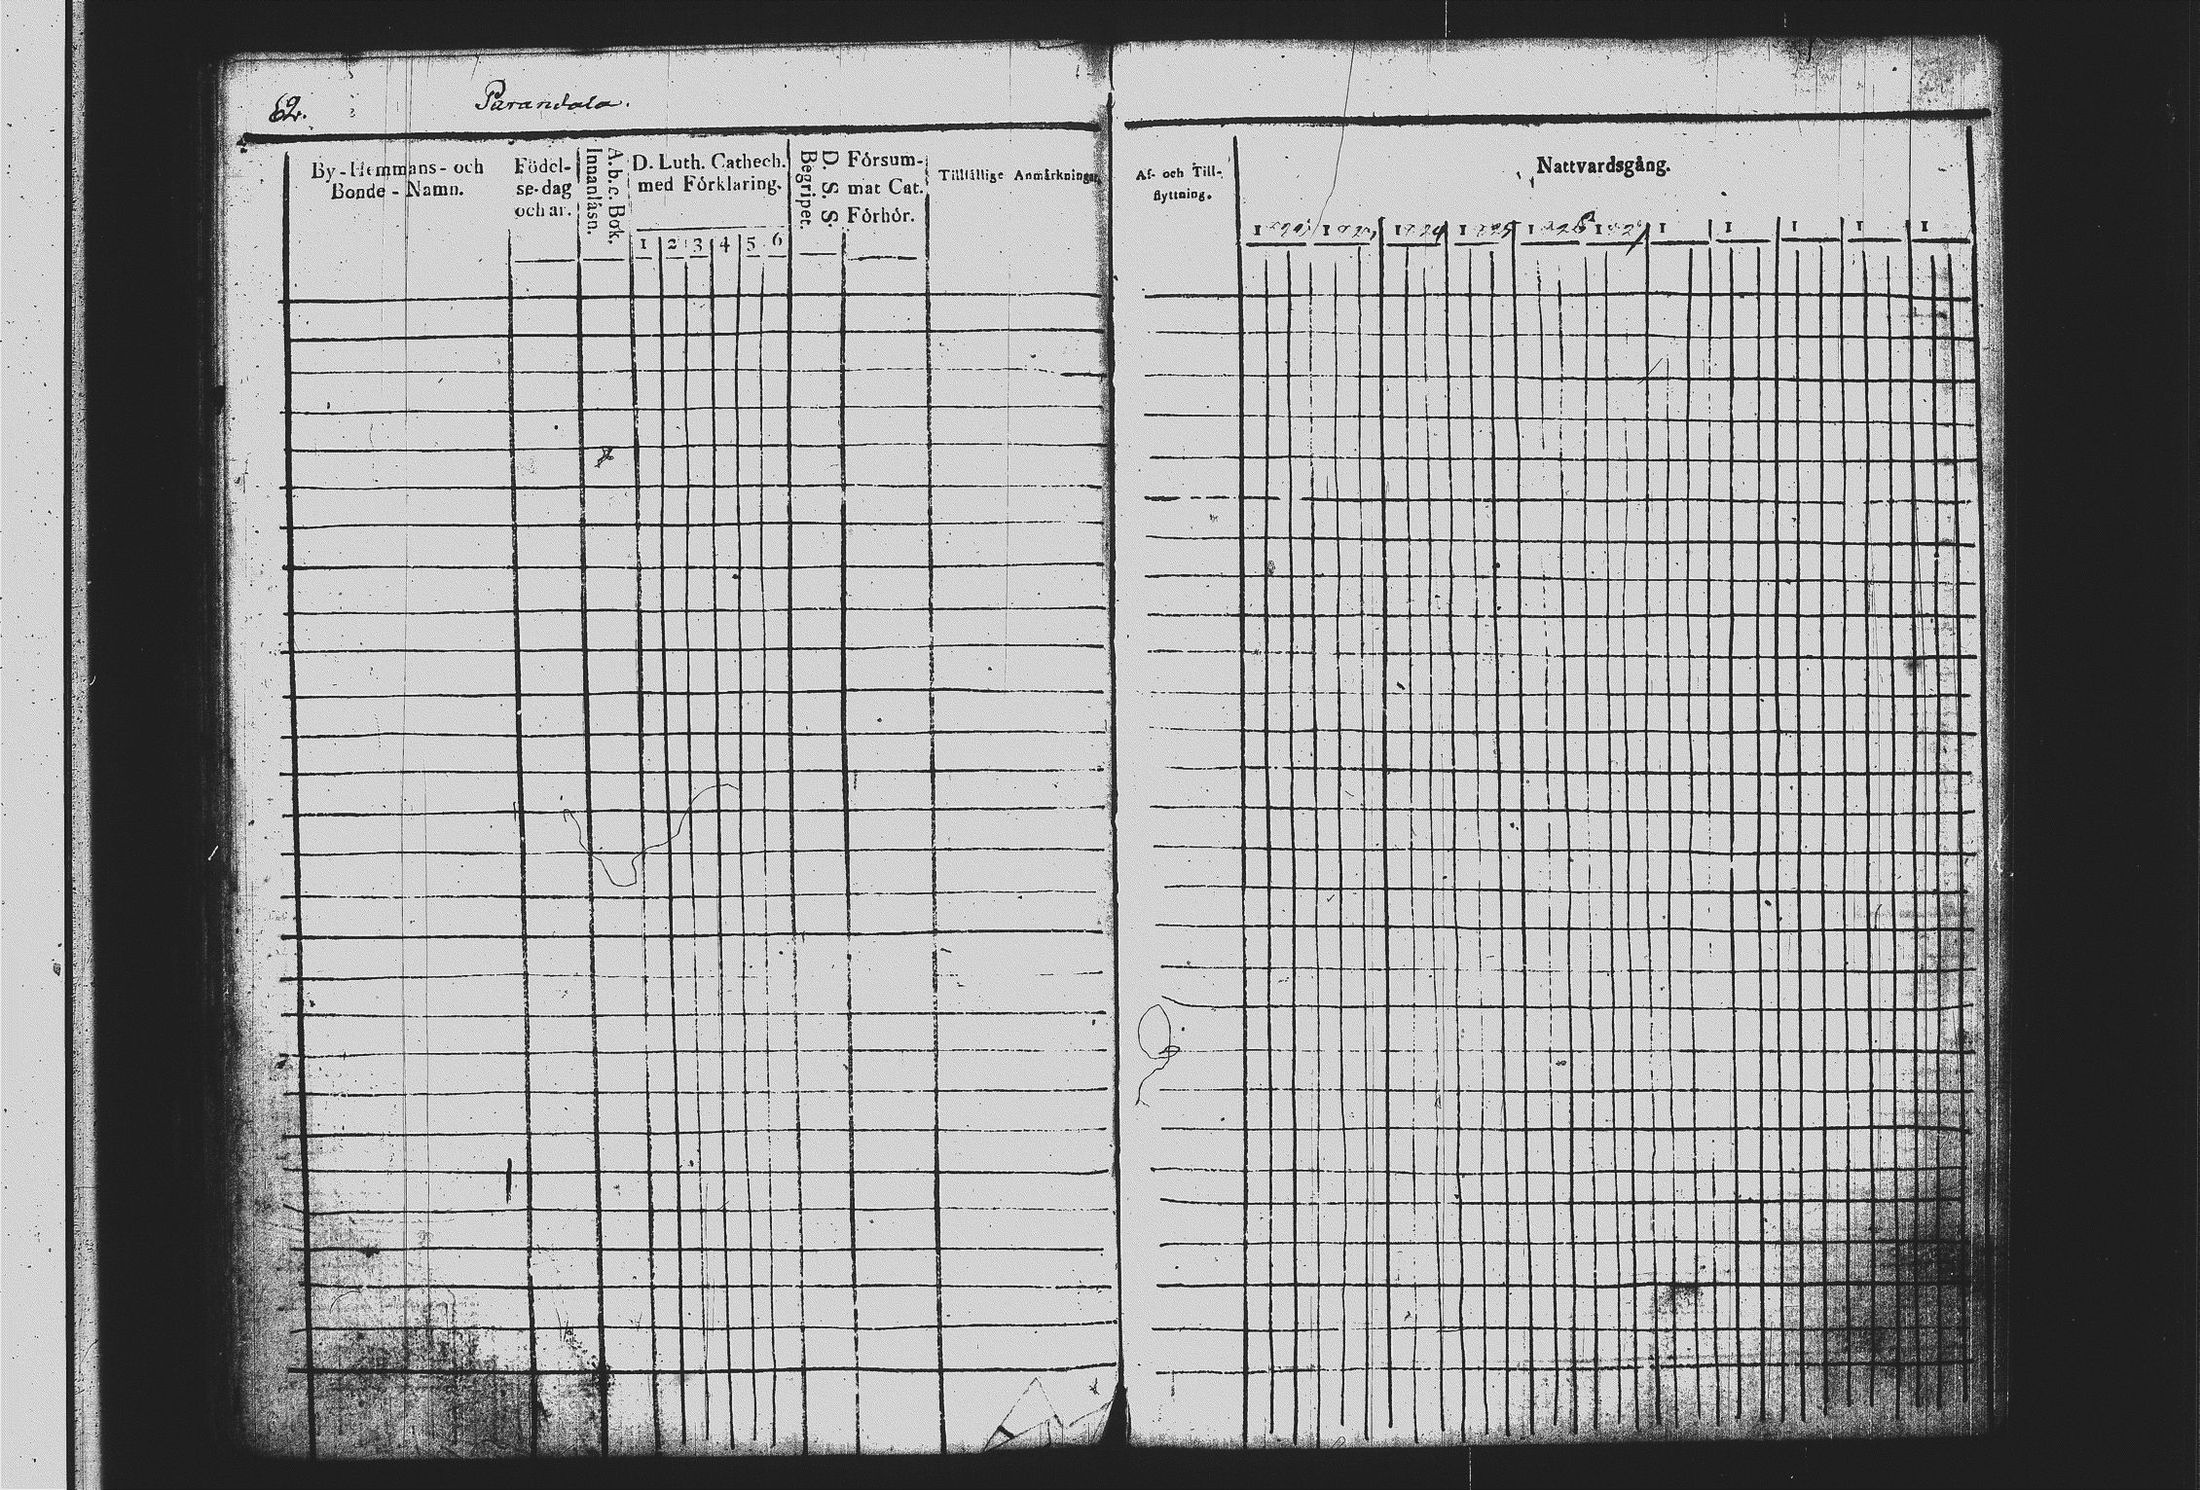 62.
Parandala.
By-Hemmans- och
Bonde-Namn.
Födel-
se-dag
och år.
A. b. c. Bok.
Innanläsn.
D. Luth. Cathech.
med Förklaring.
1 2 3 4 5 6
D. S. S.
Begripet.
Försum-
mat Cat.
Förhör.
Tillfällige Anmärkningar.
Af- och Till-
flyttning.
Nattvardsgång.
1824 1825 1826 1 1 1 1 1